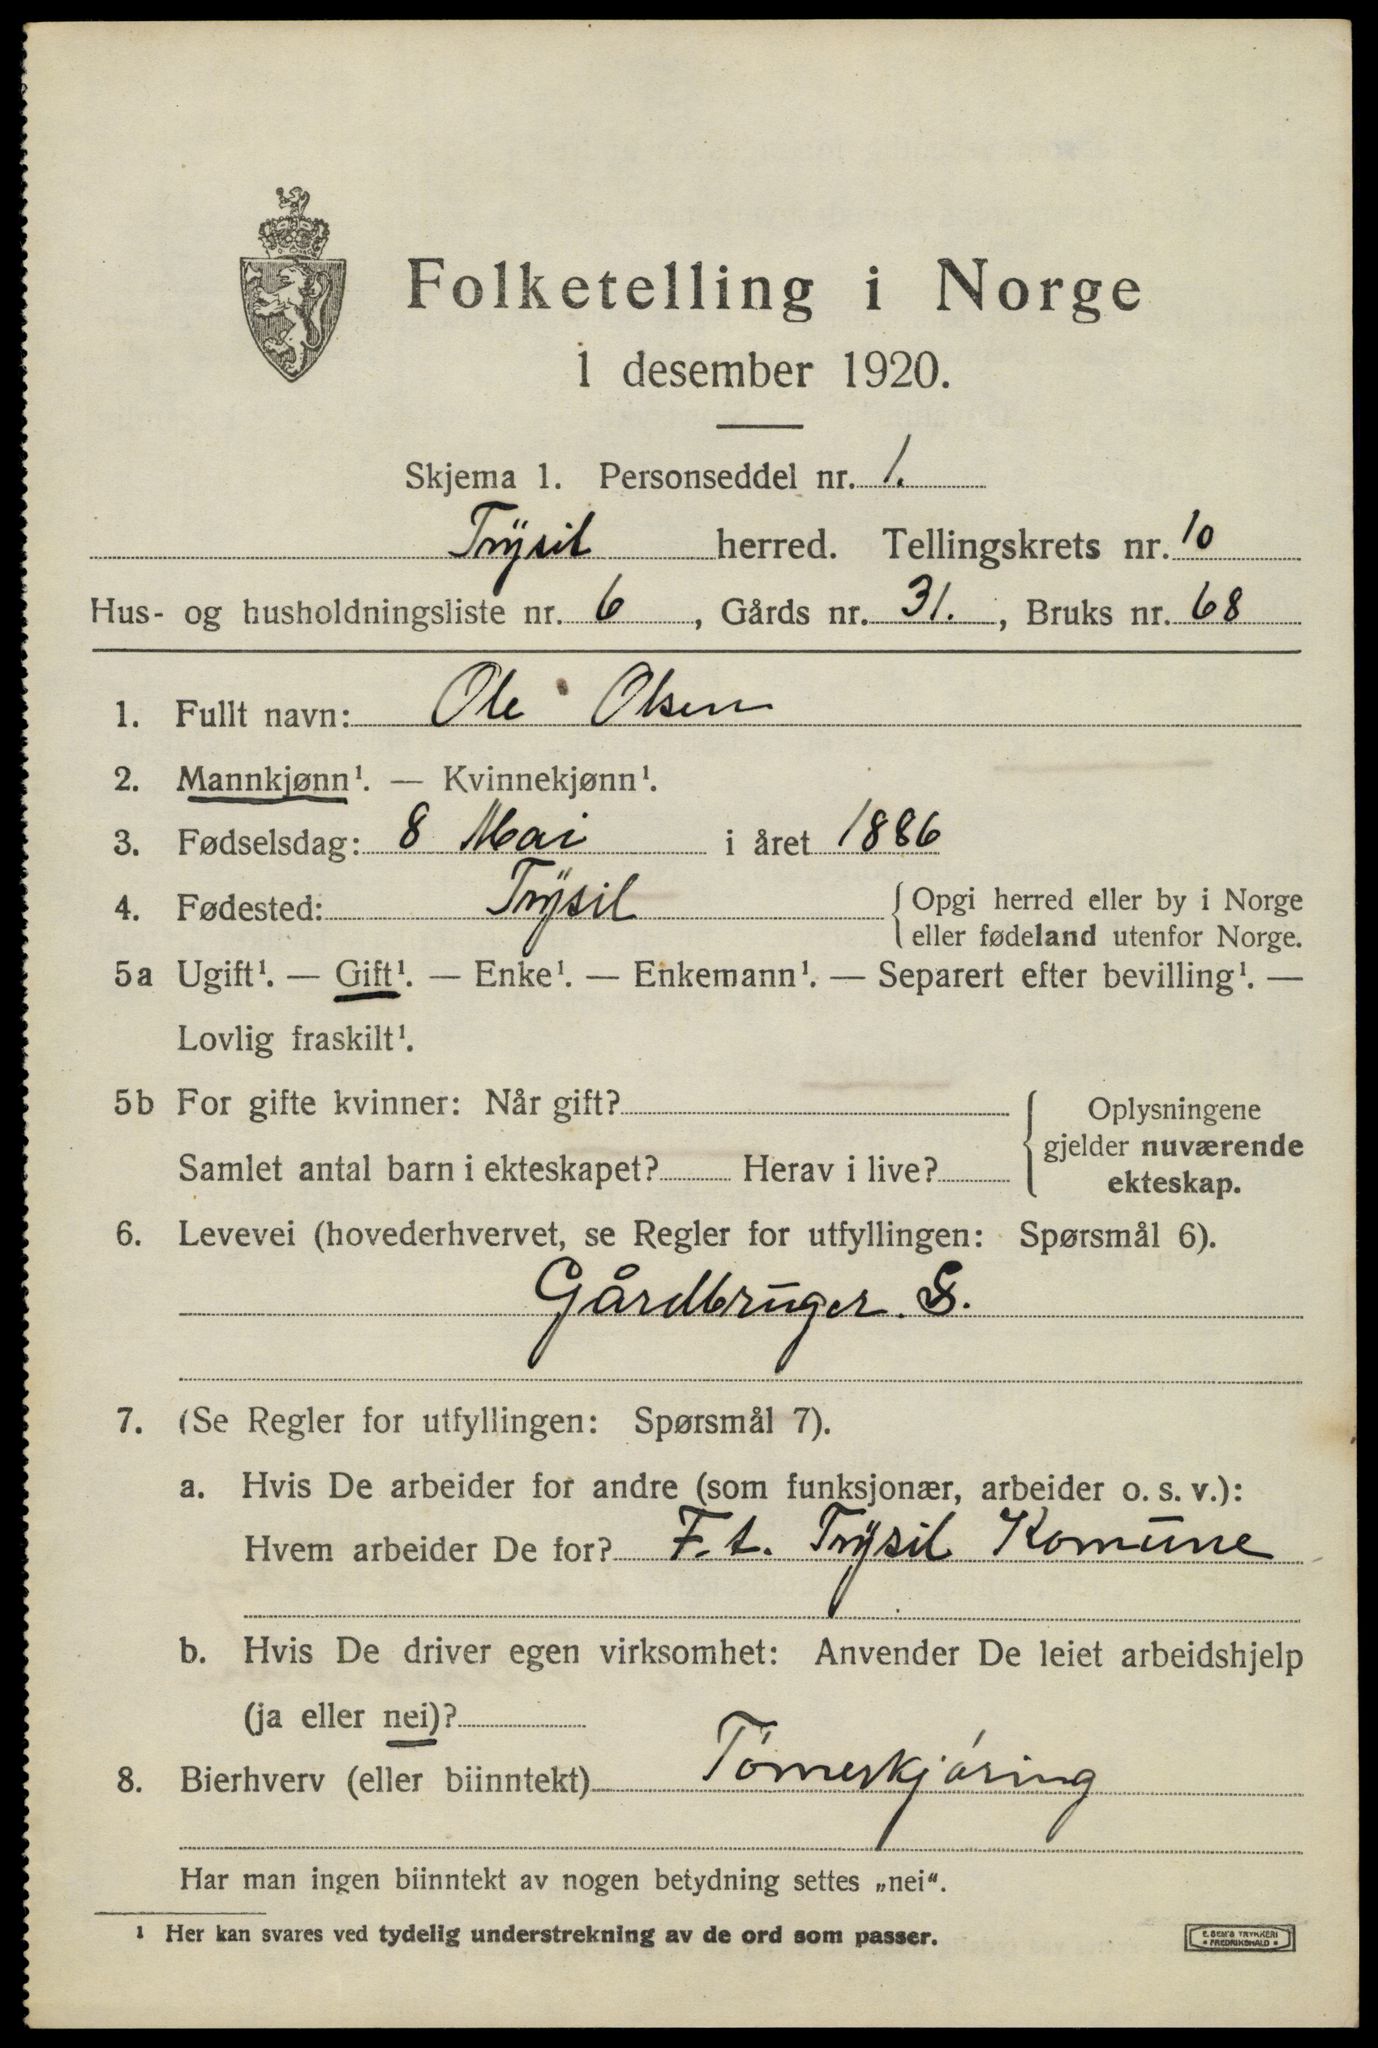 Folketelling i Norge
1 desember 1920.
Skjema 1. Personseddel nr. 1.
Trysil herred. Tellingskrets nr. 10
Hus- og husholdningsliste nr. 6, Gårds nr. 31., Bruks nr. 68
1. Fullt navn: Ole Olsen
2. Mannkjønn¹. — Kvinnekjønn¹.
3. Fødselsdag: 8 Mai i året 1886
4. Fødested: Trysil { Opgi herred eller by i Norge
eller fødeland utenfor Norge.
5a Ugift¹. — Gift¹. — Enke¹. — Enkemann¹. — Separert efter bevilling¹. —
Lovlig fraskilt¹.
5b For gifte kvinner: Når gift?
Samlet antal barn i ekteskapet? Herav i live?
{ Oplysningene
gjelder nuværende
ekteskap.
6. Levevei (hovederhvervet, se Regler for utfyllingen: Spørsmål 6).
Gårdbruger. S.
7. (Se Regler for utfyllingen: Spørsmål 7).
a. Hvis De arbeider for andre (som funksjonær, arbeider o. s. v.):
Hvem arbeider De for? F.t. Trysil Komune
b. Hvis De driver egen virksomhet: Anvender De leiet arbeidshjelp
(ja eller nei)?
8. Bierhverv (eller biinntekt) Tömerkjöring
Har man ingen biinntekt av nogen betydning settes „nei“.
¹ Her kan svares ved tydelig understrekning av de ord som passer.
E. SEM'S TRYKKERI
• FREDRIKSHALD •